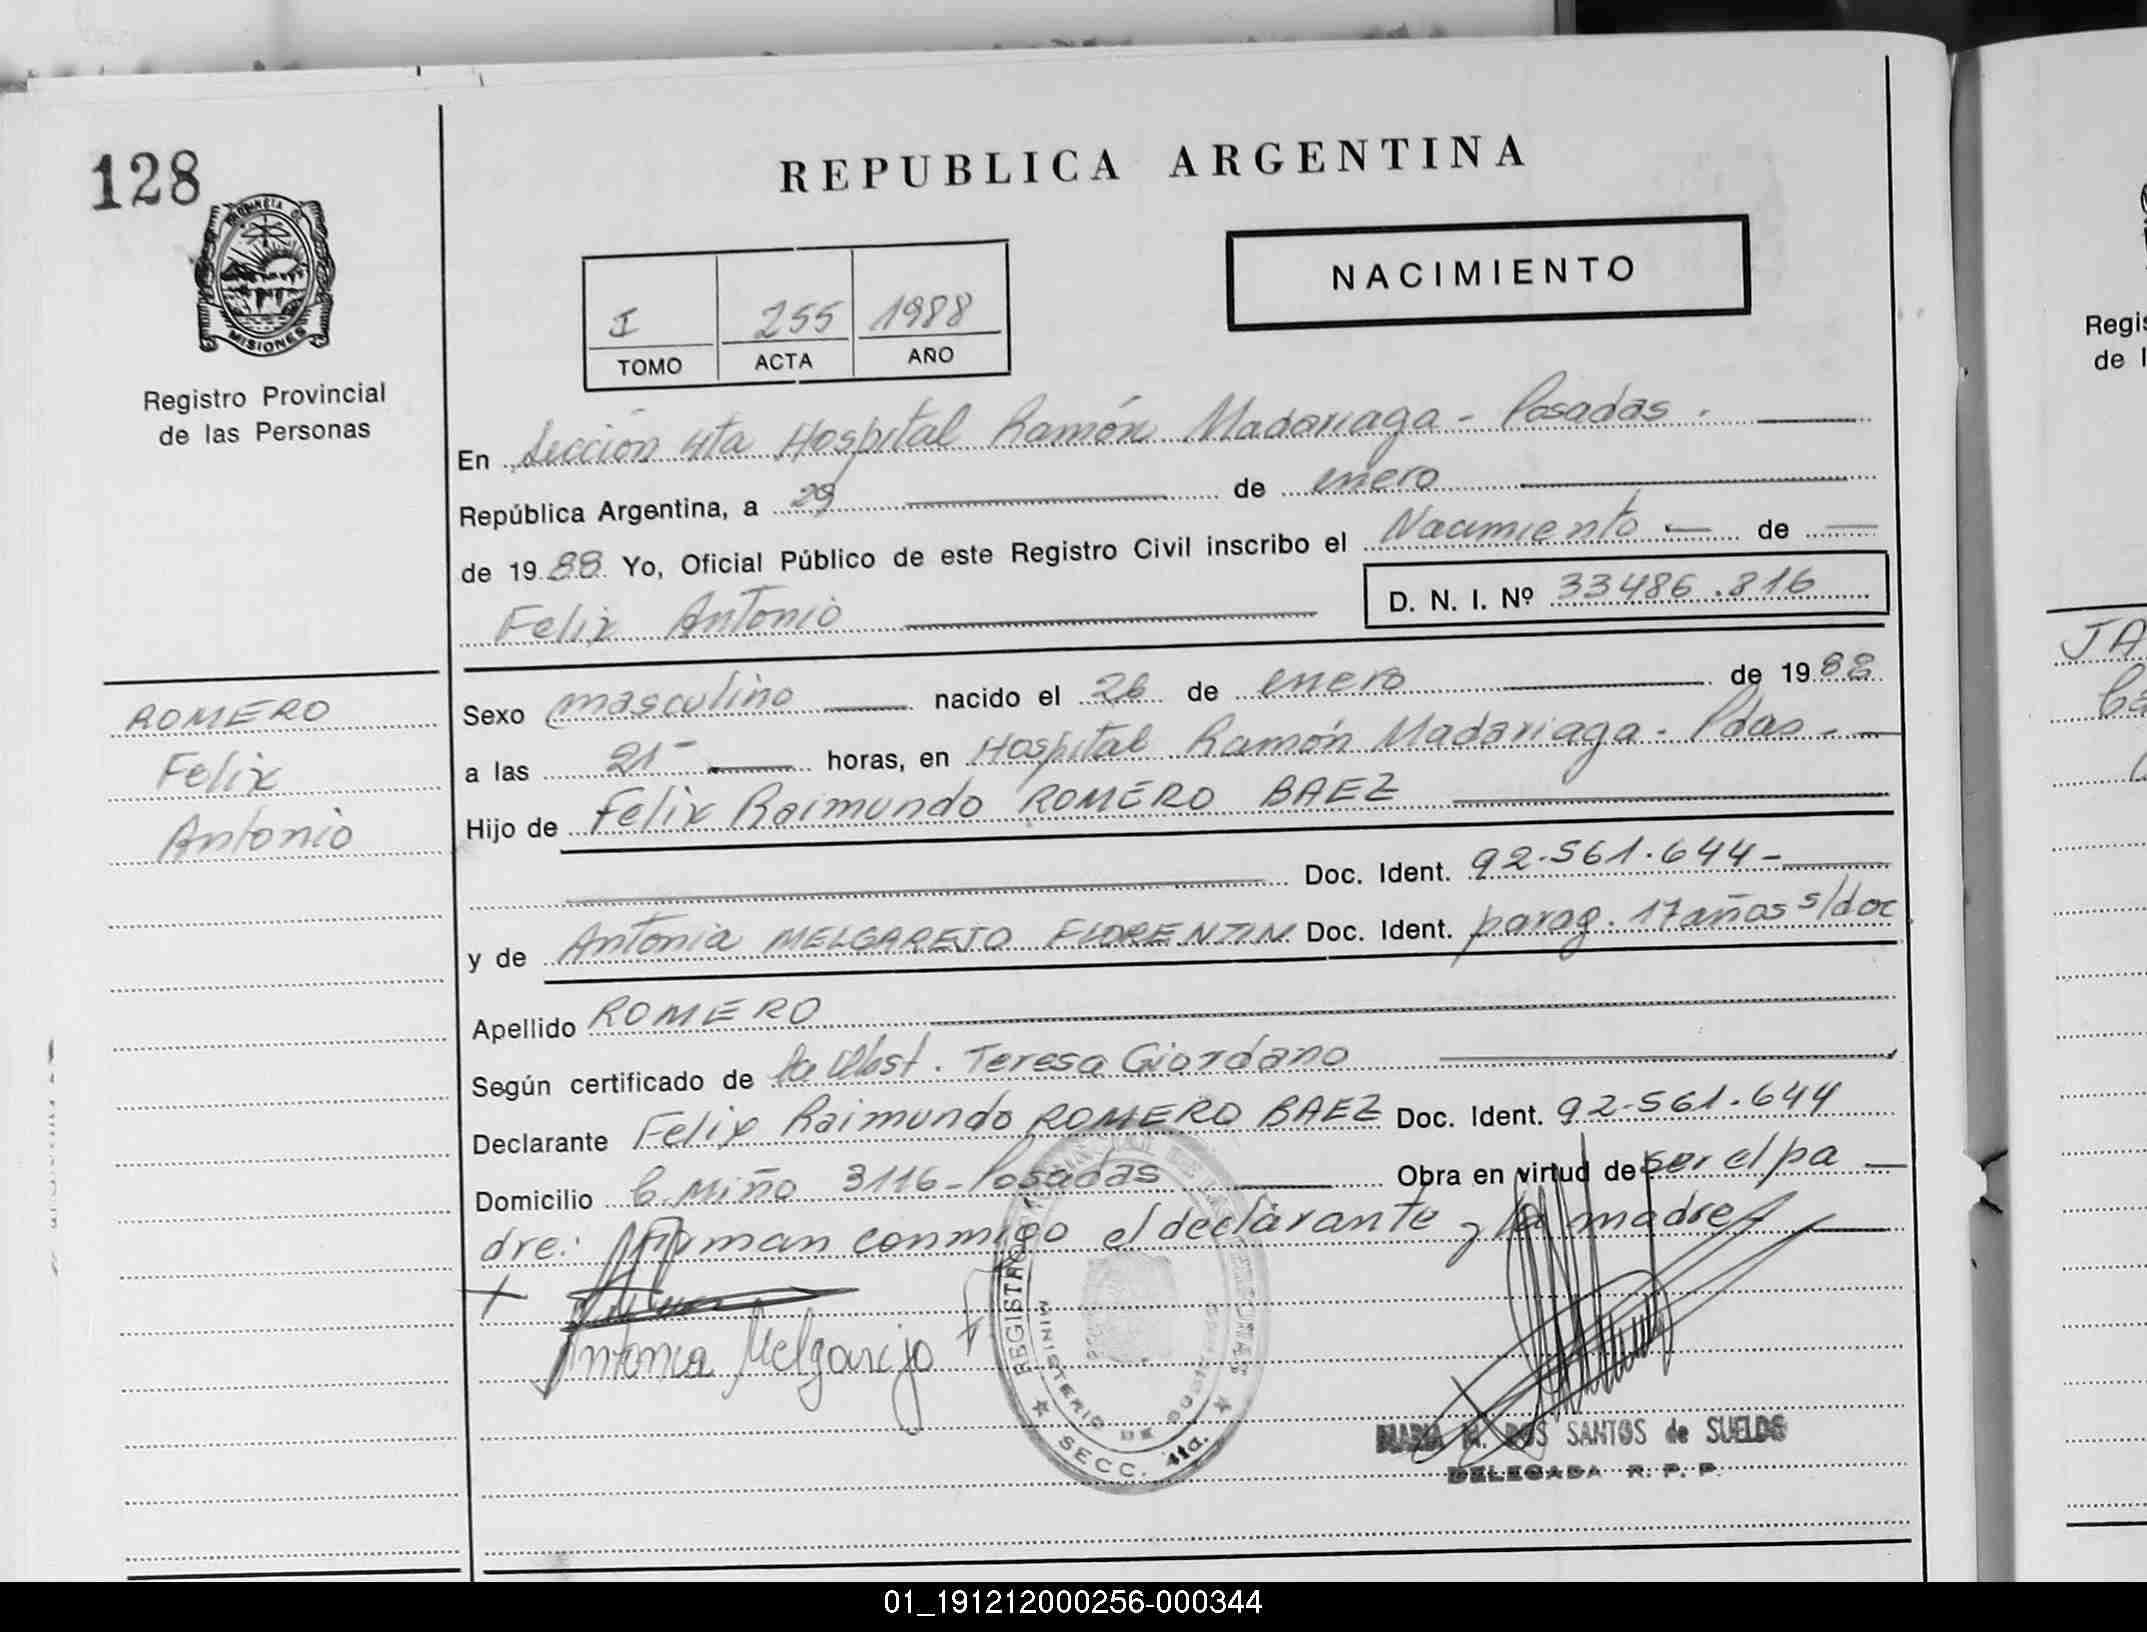 128
REPUBLICA ARGENTINA
PROVINCIA DE
MISIONES
Registro Provincial
de las Personas
I 255 1988
TOMO ACTA AÑO
NACIMIENTO
En Sección 4ta Hospital Ramón Madariaga - Posadas.
República Argentina, a 29 de enero
de 1988 Yo, Oficial Público de este Registro Civil inscribo el Nacimiento de
Felix Antonio
D. N. I. Nº 33486.816
ROMERO
Felix
Antonio
Sexo masculino nacido el 26 de enero de 1988
a las 21- horas, en Hospital Ramón Madariaga - Pdas -
Hijo de Felix Raimundo ROMERO BAEZ
Doc. Ident. 92.561.644-
y de Antonia MELGAREJO FLORENTIN Doc. Ident. parag. 17 años s/doc
Apellido ROMERO
Según certificado de la Obst. Teresa Giordano
Declarante Felix Raimundo ROMERO BAEZ Doc. Ident. 92-561.644
Domicilio C. Miño 3116 - Posadas Obra en virtud de ser el pa
dre.: Firman conmigo el declarante y la madre
Antonia Melgarejo
MINISTERIO DE GOBIERNO
SECC. 4ta.
MARIA M. DOS SANTOS de SUELDO
DELEGADA R. P. P.
Regis
de l
JA
01_191212000256-000344